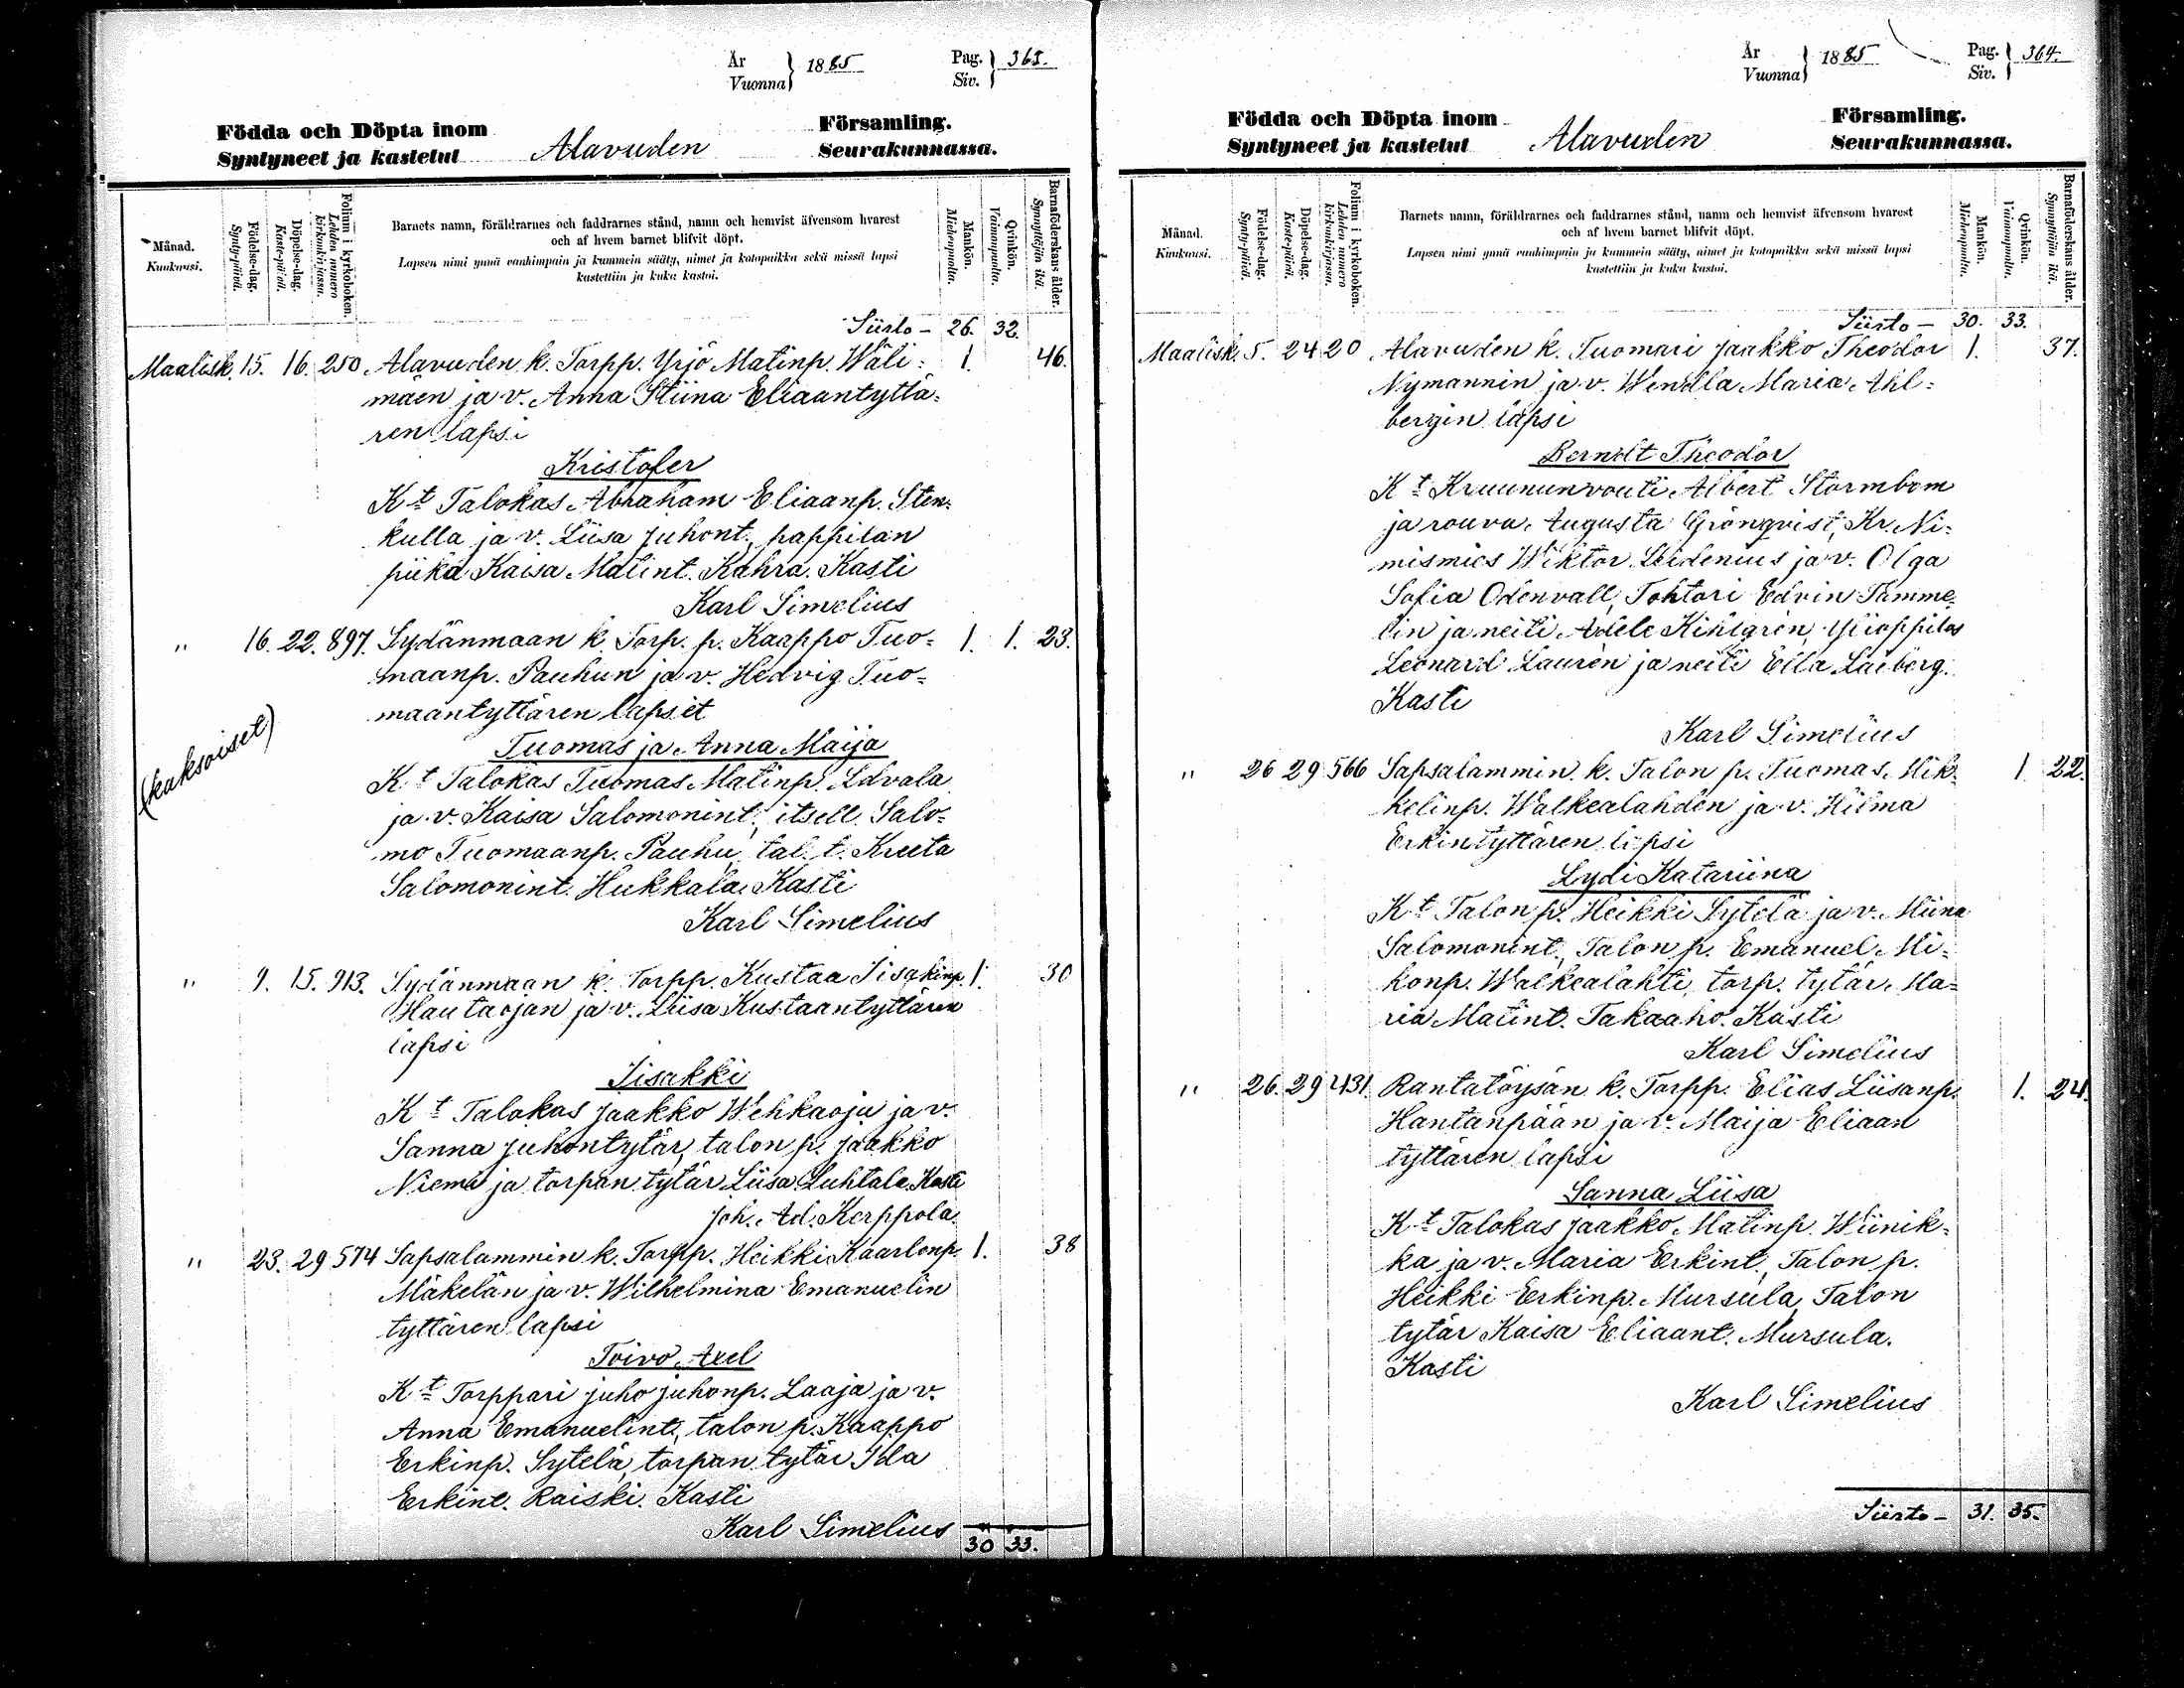 År
Vuonna } 1885 Pag.
Siv. } 363.
Födda och Döpta inom
Syntyneet ja kastetut Alavuden Församling.
Seurakunnassa.
Månad.
Kuukausi.
Födelse-dag.
Synty-päivä.
Döpelse-dag.
Kaste-päivä.
Folium i kyrkoboken.
Lehden numero kirkonkirjassa.
Barnets namn, föräldrarnes och faddrarnes stånd, namn och hemvist äfvensom hvarest
och af hvem barnet blifvit döpt.
Lapsen nimi ynnä vanhimpain ja kummein sääty, nimet ja kotopaikka sekä missä lapsi
kastettiin ja kuka kastoi.
Mankön.
Miehenpuolta.
Qvinkön.
Vaimonpuolta.
Barnaföderskans ålder.
Synnyttäjän ikä.
Siirto - 26. 32.
Maalisk. 15. 16. 250 Alavuden k. Torpp. Yrjö Matinp. Wäli= 1. 46.
mäen ja v. Anna Stiina Eliaantyttä=
ren lapsi
Kristofer
Kt Talokas Abraham Eliaanp. Sten=
kulla ja v. Liisa Juhont., pappilan
piika Kaisa Matint. Kahra. Kasti
Karl Simelius
" 16. 22. 897. Sydänmaan k. Torp. p. Kaappo Tuo= 1. 1. 23.
maanp. Pauhun ja v. Hedvig Tuo=
maantyttären lapset
(kaksoiset)
Tuomas ja Anna Maija
Kt Talokas Tuomas Matinp. Ldvala
ja v. Kaisa Salomonint., itsell. Salo=
mo Tuomaanp. Pauhu, tal. t. Kreeta
Salomonint. Hukkala. Kasti
Karl Simelius
" 9. 15. 913. Sydänmaan k. Torpp. Kustaa Iisakinp. 1. 30
Hautaojan ja v. Liisa Kustaantyttären
lapsi
Iisakki
Kt Talokas Jaakko Wehkaoja ja v.
Sanna Juhontytär, talon p. Jaakko
Niemi ja torpan tytär Liisa Luhtala. Kasti
Joh. Ad. Kerppola.
" 23. 29 574 Sapsalammin k. Torpp. Heikki Kaarlonp. 1. 38
Mäkelän ja v. Wilhelmina Emanuelin
tyttären lapsi
Toivo Axel
Kt Torppari Juho Juhonp. Laaja ja v.
Anna Emanuelint., talon p. Kaappo
Erkinp. Sytelä, torpan tytär Ida
Erkint. Raiski. Kasti
Karl Simelius
30 33.
År
Vuonna } 1885 Pag.
Siv. } 364.
Födda och Döpta inom
Syntyneet ja kastetut Alavuden Församling.
Seurakunnassa.
Månad.
Kuukausi.
Födelse-dag.
Synty-päivä.
Döpelse-dag.
Kaste-päivä.
Folium i kyrkoboken.
Lehden numero kirkonkirjassa.
Barnets namn, föräldrarnes och faddrarnes stånd, namn och hemvist äfvensom hvarest
och af hvem barnet blifvit döpt.
Lapsen nimi ynnä vanhimpain ja kummein sääty, nimet ja kotopaikka sekä missä lapsi
kastettiin ja kuka kastoi.
Mankön.
Miehenpuolta.
Qvinkön.
Vaimonpuolta.
Barnaföderskans ålder.
Synnyttäjän ikä.
Siirto - 30. 33.
Maalisk. 5. 24 20 Alavuden k. Tuomari Jaakko Theodor 1. 37.
Nymannin ja v. Wendla Maria Ahl=
bergin lapsi
Berndt Theodor
Kt Kruununvouti Albert Stormbom
ja rouva Augusta Grönqvist, Kr. Ni=
mismies Wiktor Lidenius ja v. Olga
Sofia Odenvall, Tohtori Edvin Tamme=
lin ja neiti Adele Kihlgrén, Ylioppilas
Leonard Laurèn ja neiti Ella Laiberg.
Kasti
Karl Simelius
" 26 29 566 Sapsalammin k. Talon p. Tuomas Mik= 1 22.
kelinp. Walkealahden ja v. Hilma
Erkintyttären lapsi
Lydi Katariina
Kt Talon p. Heikki Sytelä ja v. Miina
Salomonint., Talon p. Emanuel Mi=
konp. Walkealahti, torp. tytär Ma=
ria Matint. Takaaho. Kasti
Karl Simelius
" 26. 29 431. Rantatöysän k. Torpp. Elias Liisanp. 1. 24.
Hantanpään ja v. Maija Eliaan
tyttären lapsi
Sanna Liisa
Kt Talokas Jaakko Matinp. Wiinik=
ka ja v. Maria Erkint., Talon p.
Heikki Erkinp. Mursula, Talon
tytär Kaisa Eliaant. Mursula.
Kasti
Karl Simelius
Siirto - 31. 35.